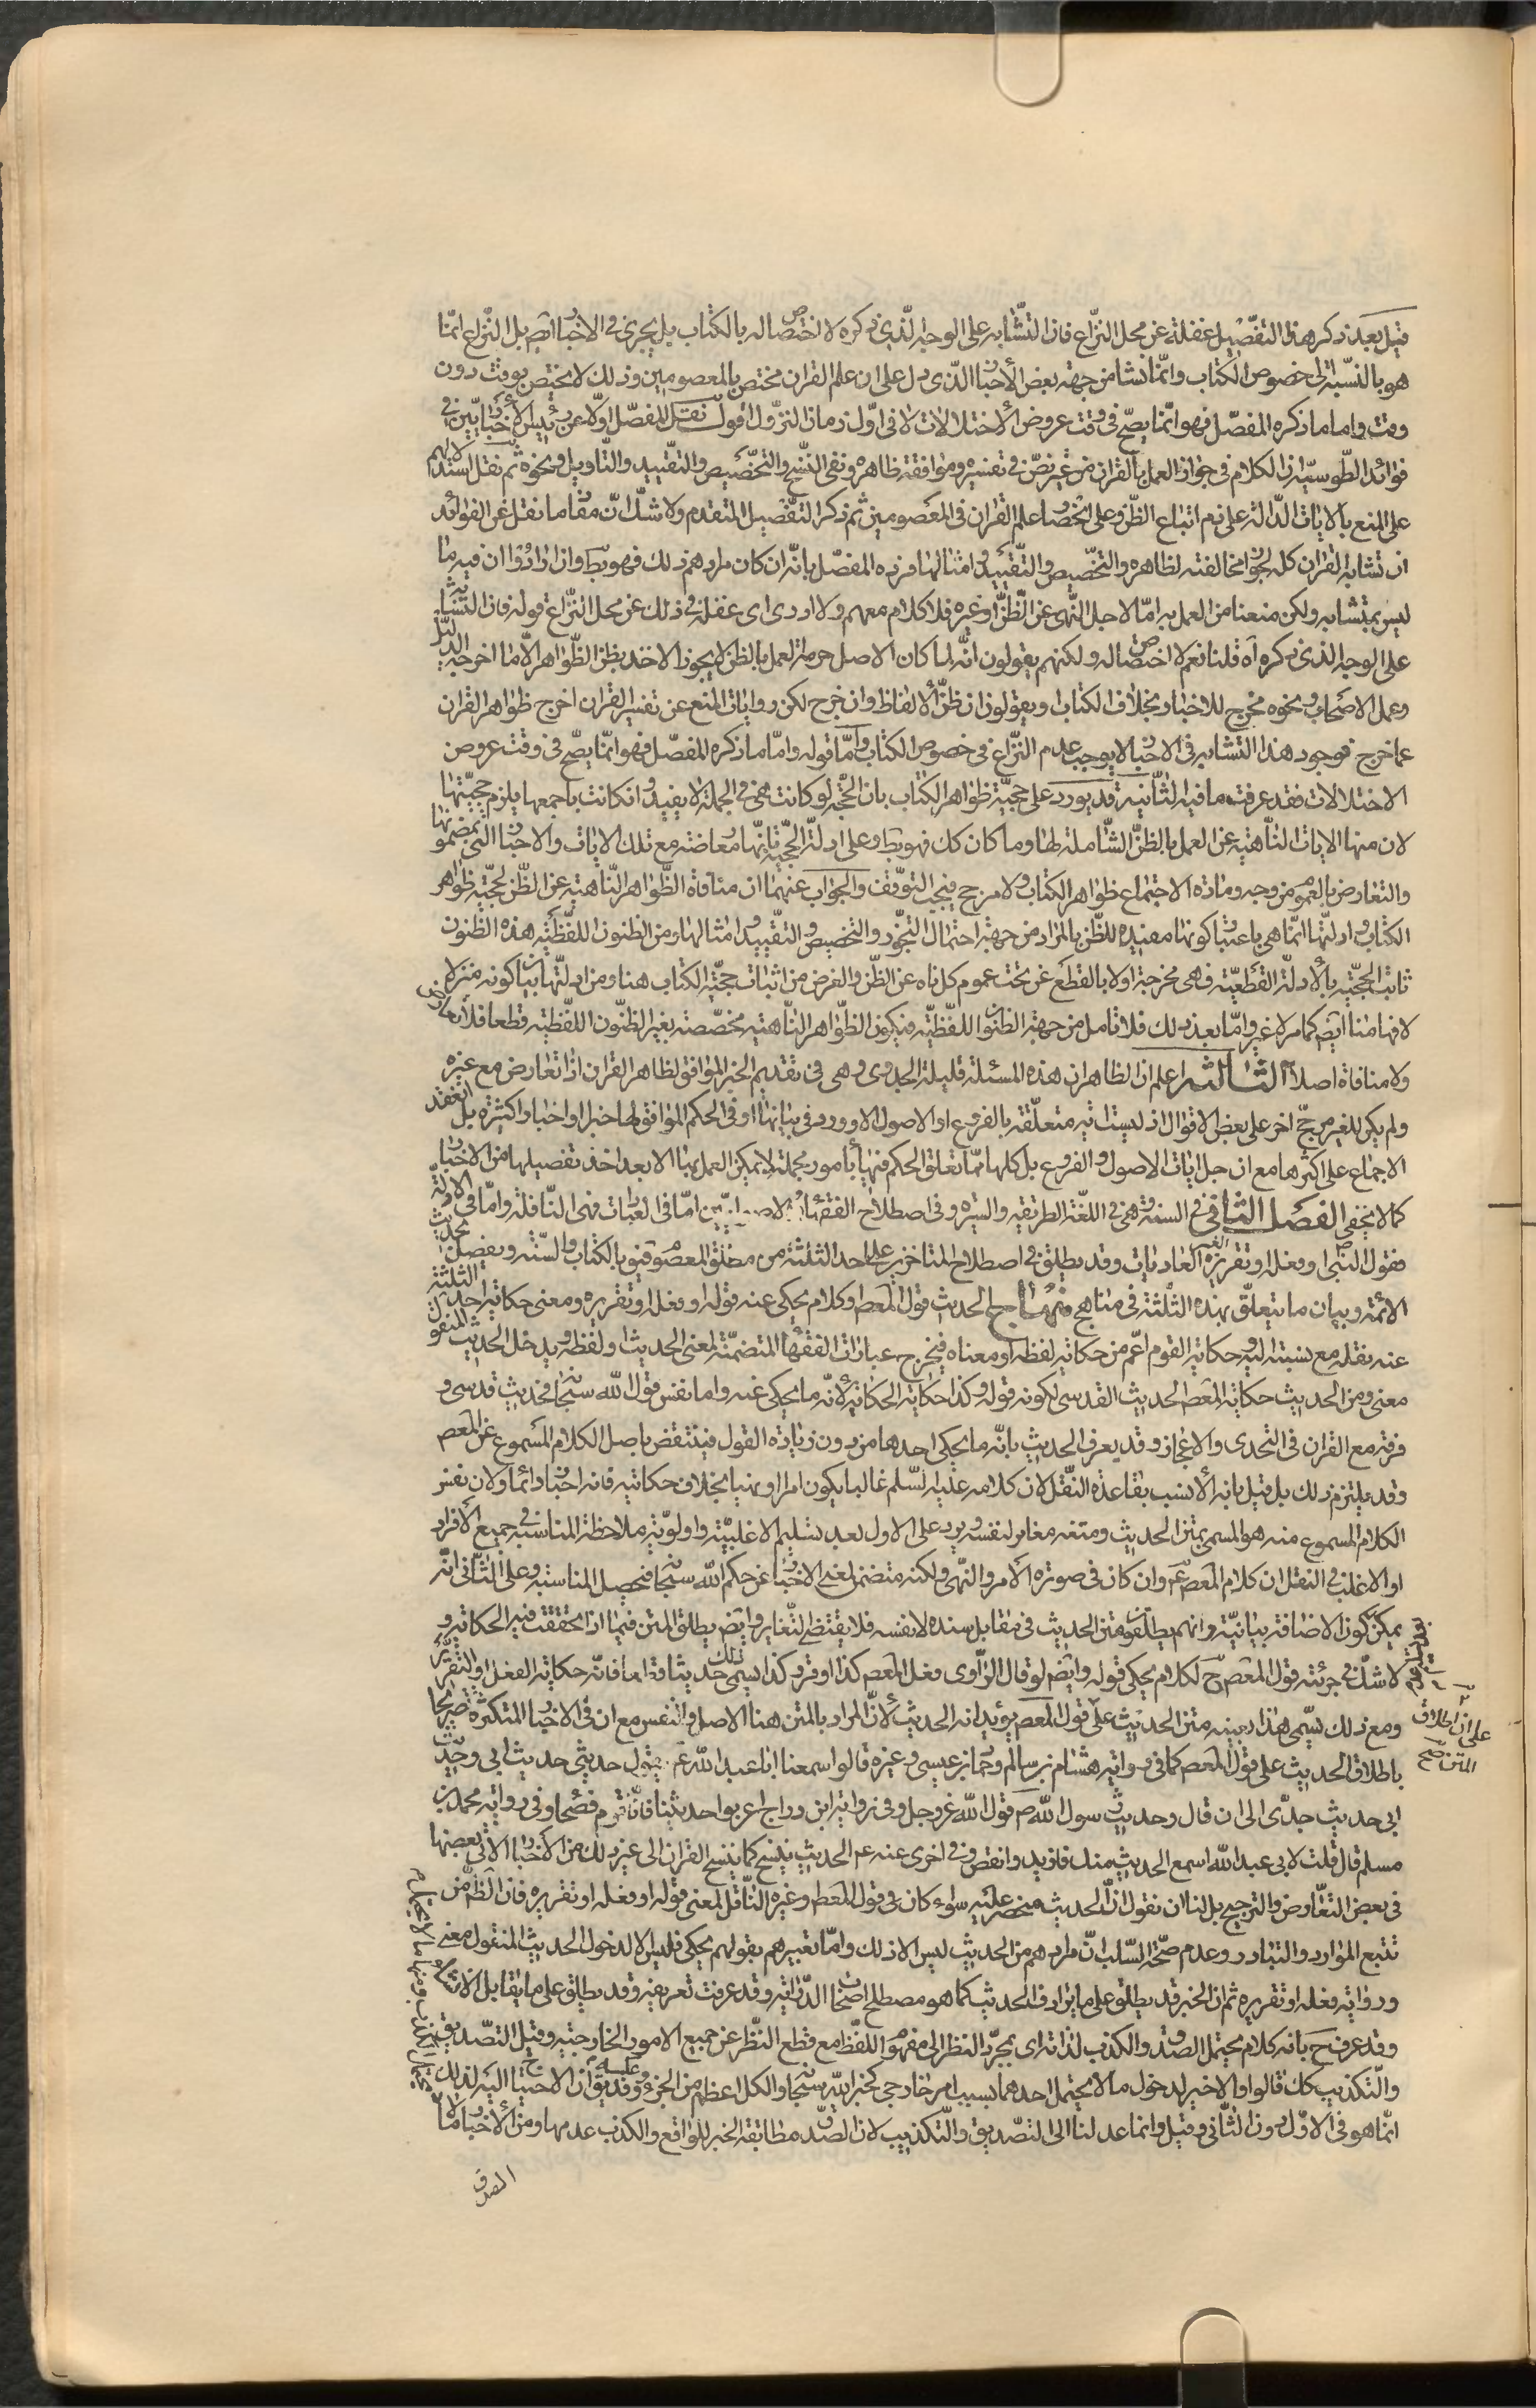 قيل بعد ذكر هذا التفصيل غفلة عن محل النزاع فان التشابه على الوجه الذى ذكره لا اختصاص له بالكتاب بل يجرى فى الاخبار ايضم بل النزاع انما
هو بالنسبة الى خصوص الكتاب وانما نشا من جهة بعض الأخبار الذى دل على ان علم القران مختص بالمعصومين وذلك لا يختص بوقت دون
وقت واما ما ذكره المفصل فهو انما يصح فى وقت عروض الاختلالات لا فى اول زمان النزول اقول نقل المفصل اولا عن الأخباريين فى
فوائد الطوسية ان الكلام فى جواز العمل بالقران من غير نص فى تفسيره وموافقة ظاهره ونفى النسخ والتخصيص والتقييد والتاويل ونحوه ثم نقل استدلالهم
على المنع بالايات الدالة على ذم اتباع الظن وعلى انحصار علم القران فى المعصومين ثم ذكر التفصيل المتقدم ولا شك ان مقام ما نقل عن الفوائد
ان تشابه القران كله لجواز مخالفته لظاهره والتخصيص والتقييد وامثالها فرده المفصل بانه ان كان مرادهم ذلك فهو بط وان ارادوا ان فيه ما
ليس بمتشابه ولكن منعنا من العمل به اما لاجل النهى عن الظن او غيره فلا كلام معهم ولا ادرى اى غفلة فى ذلك عن محل النزاع قوله فان التشابه
على الوجه الذى ذكره اه قلنا نعم لا اختصاص له ولكنهم يقولون انه لما كان الاصل حرمة العمل بالظن لا يجوز الاخذ بظن الظواهر الا ما اخرجه الدليل
وعمل الاصحاب ونحوه مخرج للاخبار بخلاف الكتاب او يقولون ان ظن الالفاظ وان خرج لكن روايات المنع عن تفسير القران اخرج ظواهر القران
عما خرج فوجود هذا التشابه فى الاخبار لا يوجب عدم النزاع فى خصوص الكتاب واما قوله واما ما ذكره المفصل فهو انما يصح فى وقت عروض
الاختلالات فقد عرفت ما فيه الثانية قد يورد على حجية ظواهر الكتاب بان الحجة لو كانت هى فى الجملة لا يفيد وان كانت باجمعها يلزم حجيتها
لان منها الايات الناهية عن العمل بالظن الشاملة لها وما كان كك فهو بط وعلى ادلة الحجية بانها معارضة مع تلك الايات والاخبار التى بمضمونها
والتعارض بالعموم من وجه ومادة الاجتماع ظواهر الكتاب ولا مرجح فيجب التوقف والجواب عنهما ان منافاة الظواهر الناهية عن الظن لحجية ظواهر
الكتاب وادلتها انما هى باعتبار كونها مفيدة للظن بالمراد من جهة احتمال التجوز والتخصيص والتقييد وامثالها ومن الظنون اللفظية هذه الظنون
ثابت الحجية بالأدلة القطعية فهى مخرجة اولا بالقطع عن تحت عموم كل ناه عن الظن والغرض من اثبات حجية الكتاب هنا ومن ادلتها اثبات كونه منزلا
لافهامنا ايضم كما مر لا غير واما بعد ذلك فلا تامل من جهة الظنون اللفظية فيكون الظواهر الناهية مخصصة بغير الظنون اللفظية قطعا فلا تعارض
ولا منافاة اصلا الثالثة اعلم ان الظاهر ان هذه المسئلة قليلة الجدوى وهى فى تقديم الخبر الموافق لظاهر القران اذا تعارض مع غيره
ولم يكن للغير مرجح اخر على بعض الاقوال اذ ليست اية متعلقة بالفروع او الاصول الا وورد فى بيانها او فى الحكم الموافق لها خبر او اخبار كثيرة بل انعقد
الاجماع على اكثرها مع ان جل ايات الاصول والفروع بل كلها مما تعلق الحكم فيها بأمور مجملة لا يمكن العمل بها الا بعد اخذ تفصيلها من الاخبار
كما لا يخفى الفصل الثانى فى السنة وهى فى اللغة الطريقة والسيرة وفى اصطلاح الفقهاء والاصوليين اما فى العبادات فهى النافلة واما فى الادلة
فقول النبى او فعله او تقريره الغير العاديات وقد يطلق فى اصطلاح المتاخرين على احد الثلثة من مطلق المعصوم فيق بالكتاب والسنة وبفصل تحديث
الائمة وبيان ما يتعلق بهذه الثلثة فى مناهج منهاج الحديث قول المعصم او كلام يحكى عنه قوله او فعله او تقريره ومعنى حكاية احد الثلثة
عنه نقله مع نسبته اليه وحكاية القوم اعم من حكاية لفظه او معناه فيخرج عبارات الفقهاء المتضمنة لمعنى الحديث او لفظه ويدخل الحديث المنقول
معنى ومن الحديث حكاية المعصم الحديث القدسى لكونه قوله وكذا حكاية الحكاية لأنه ما يحكى عنه واما نفس قول الله سبحانه فحديث قدسى و
فرقه مع القران فى التحدى والاعجاز وقد يعرف الحديث بانه ما يحكى احدها من دون زيادة القول فينتقض باصل الكلام المسموع عن المعصم
وقد يلتزم ذلك بل قيل بانه الأنسب بقاعدة النقل لان كلامه عليه السلم غالبا يكون امرا او نهيا بخلاف حكايته فانه اخبار دائما ولان نفس
الكلام المسموع منه هو المسمى بمتن الحديث ومتنه مغاير لنفسه ويرد على الاول بعد تسليم الاغلبية واولوية ملاحظة المناسبة فى جميع الافراد
او الاغلب فى النقل ان كلام المعصم ع وان كان فى صورة الأمر والنهى ولكنه متضمن لمعنى الاخبار عن حكم الله سبحانه فتحصل المناسبة وعلى الثانى انه
يمكن كون الاضافة بيانية وانهم يطلقون متن الحديث فى مقابل سنده لا نفسه فلا يقتضى التغاير وايضم يطلق المتن فيما اذا تحققت فيه الحكاية و
لا شك فى جزئية قول المعصم ح لكلام يحكى قوله وايضم لو قال الراوى فعل المعصم كذا او قرر كذا يسمى ذلك حديثا قطعا فانه حكاية الفعل او التقرير
ومع ذلك يسمى هذا بعينه متن الحديث على قول المعصم يؤيد انه الحديث لأن المراد بالمتن هنا الاصل والنفس مع ان فى الاخبار المتكثرة تصريحا
باطلاق الحديث على قول المعصم كما فى رواية هشام بن سالم وحماد بن عيسى وغيره قالوا سمعنا ابا عبد الله ع يقول حديثى حديث ابى وحديث
ابى حديث جدى الى ان قال وحديث رسول الله ص قول الله عز وجل وفى رواية ابن دراج اعربوا حديثنا فانا قوم فصحاء وفى رواية محمد بن
مسلم قال قلت لابى عبد الله اسمع الحديث منك فازيد وانقص وفى اخرى عنه ع الحديث ينسخ كما ينسخ القران الى غير ذلك من الأخبار الاتى بعضها
فى بعض التعارض والترجيح بل لنا ان نقول ان الحديث منحصر عليه سواء كان فى قول المعصم او غيره الناقل لمعنى قوله او فعله او تقريره فان الظم من
تتبع الموارد والتبادر وعدم صحة السلب ان مرادهم من الحديث ليس الا ذلك واما تعبيرهم بقولهم يحكى فليس الا لدخول الحديث المنقول معنى
ورواية فعله او تقريره ثم ان الخبر قد يطلق على ما يرادف الحديث كما هو مصطلح اصحاب الدراية وقد عرفت تعريفه وقد يطلق على ما يقابل الانشاء
وقد عرف ح بانه كلام يحتمل الصدق والكذب لذاته اى بمجرد النظر الى مفهوم اللفظ مع قطع النظر عن جميع الامور الخارجية وقيل التصديق
والتكذيب كك قالوا والاخير لدخول ما لا يحتمل احدهما بسبب امر خارجى كخبر الله سبحانه والكل اعظم من الجزء وقد يق ان الاحتياج اليه لذلك
انما هو فى الاول دون الثانى وقيل وانما عدلنا الى التصديق والتكذيب لان الصدق مطابقة الخبر للواقع والكذب عدمها ومن الأخبار ما لا
على ان اطلاق
المتن صح
الصدق